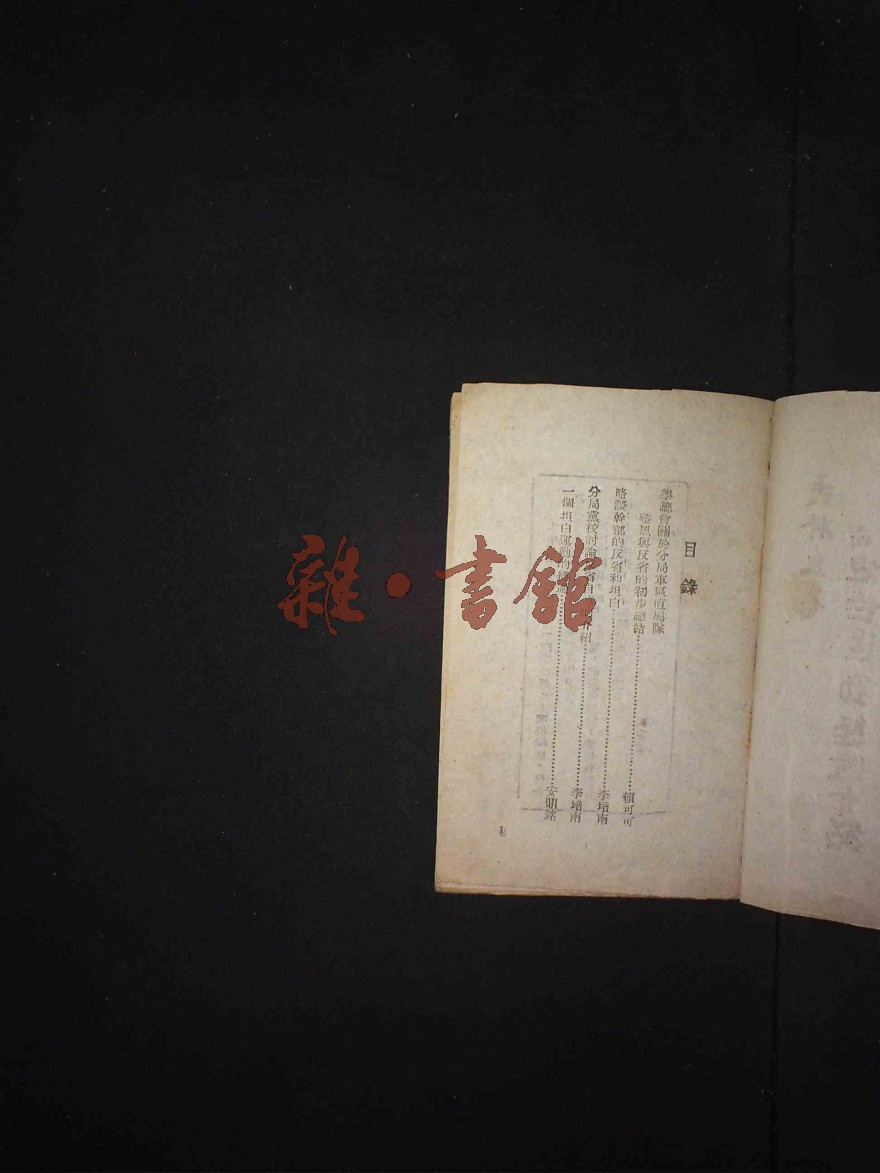 目錄
學總會關於分局軍區直屬隊
整風與反省的初步總結…………賴可可
略談幹部的反省和坦白…………李培南
分局黨校討論 省自 紹…………李培南
一個坦白運動的 …………安鼎銘
雜·書館